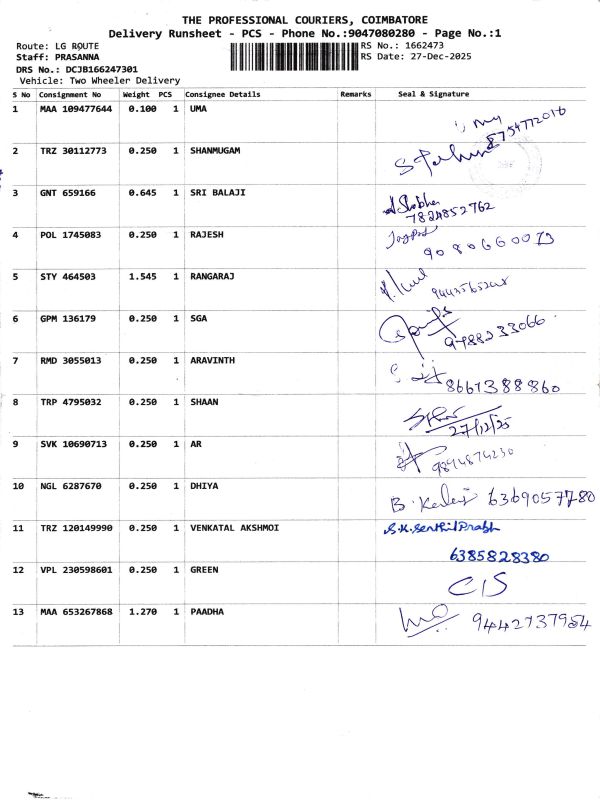 THE PROFESSIONAL COURIERS, COIMBATORE
Delivery Runsheet - PCS - Phone No.:9047080280 - Page No.:1
Route: LG ROUTE RS No.: 1662473
Staff: PRASANNA RS Date: 27-Dec-2025
DRS No.: DCJB166247301
Vehicle: Two Wheeler Delivery
S No Consignment No Weight PCS Consignee Details Remarks Seal & Signature
1 MAA 109477644 0.100 1 UMA
8754772016
2 TRZ 30112773 0.250 1 SHANMUGAM
3 GNT 659166 0.645 1 SRI BALAJI
7824852762
4 POL 1745083 0.250 1 RAJESH
5 STY 464503 1.545 1 RANGARAJ
6 GPM 136179 0.250 1 SGA
9788233066
7 RMD 3055013 0.250 1 ARAVINTH
8661388860
8 TRP 4795032 0.250 1 SHAAN
27/12/25
9 SVK 10690713 0.250 1 AR
9894874230
10 NGL 6287670 0.250 1 DHIYA
6369057780
11 TRZ 120149990 0.250 1 VENKATAL AKSHMOI S.K.SenthilPrabh
6385828380
12 VPL 230598601 0.250 1 GREEN
CIS
13 MAA 653267868 1.270 1 PAADHA
9442737954